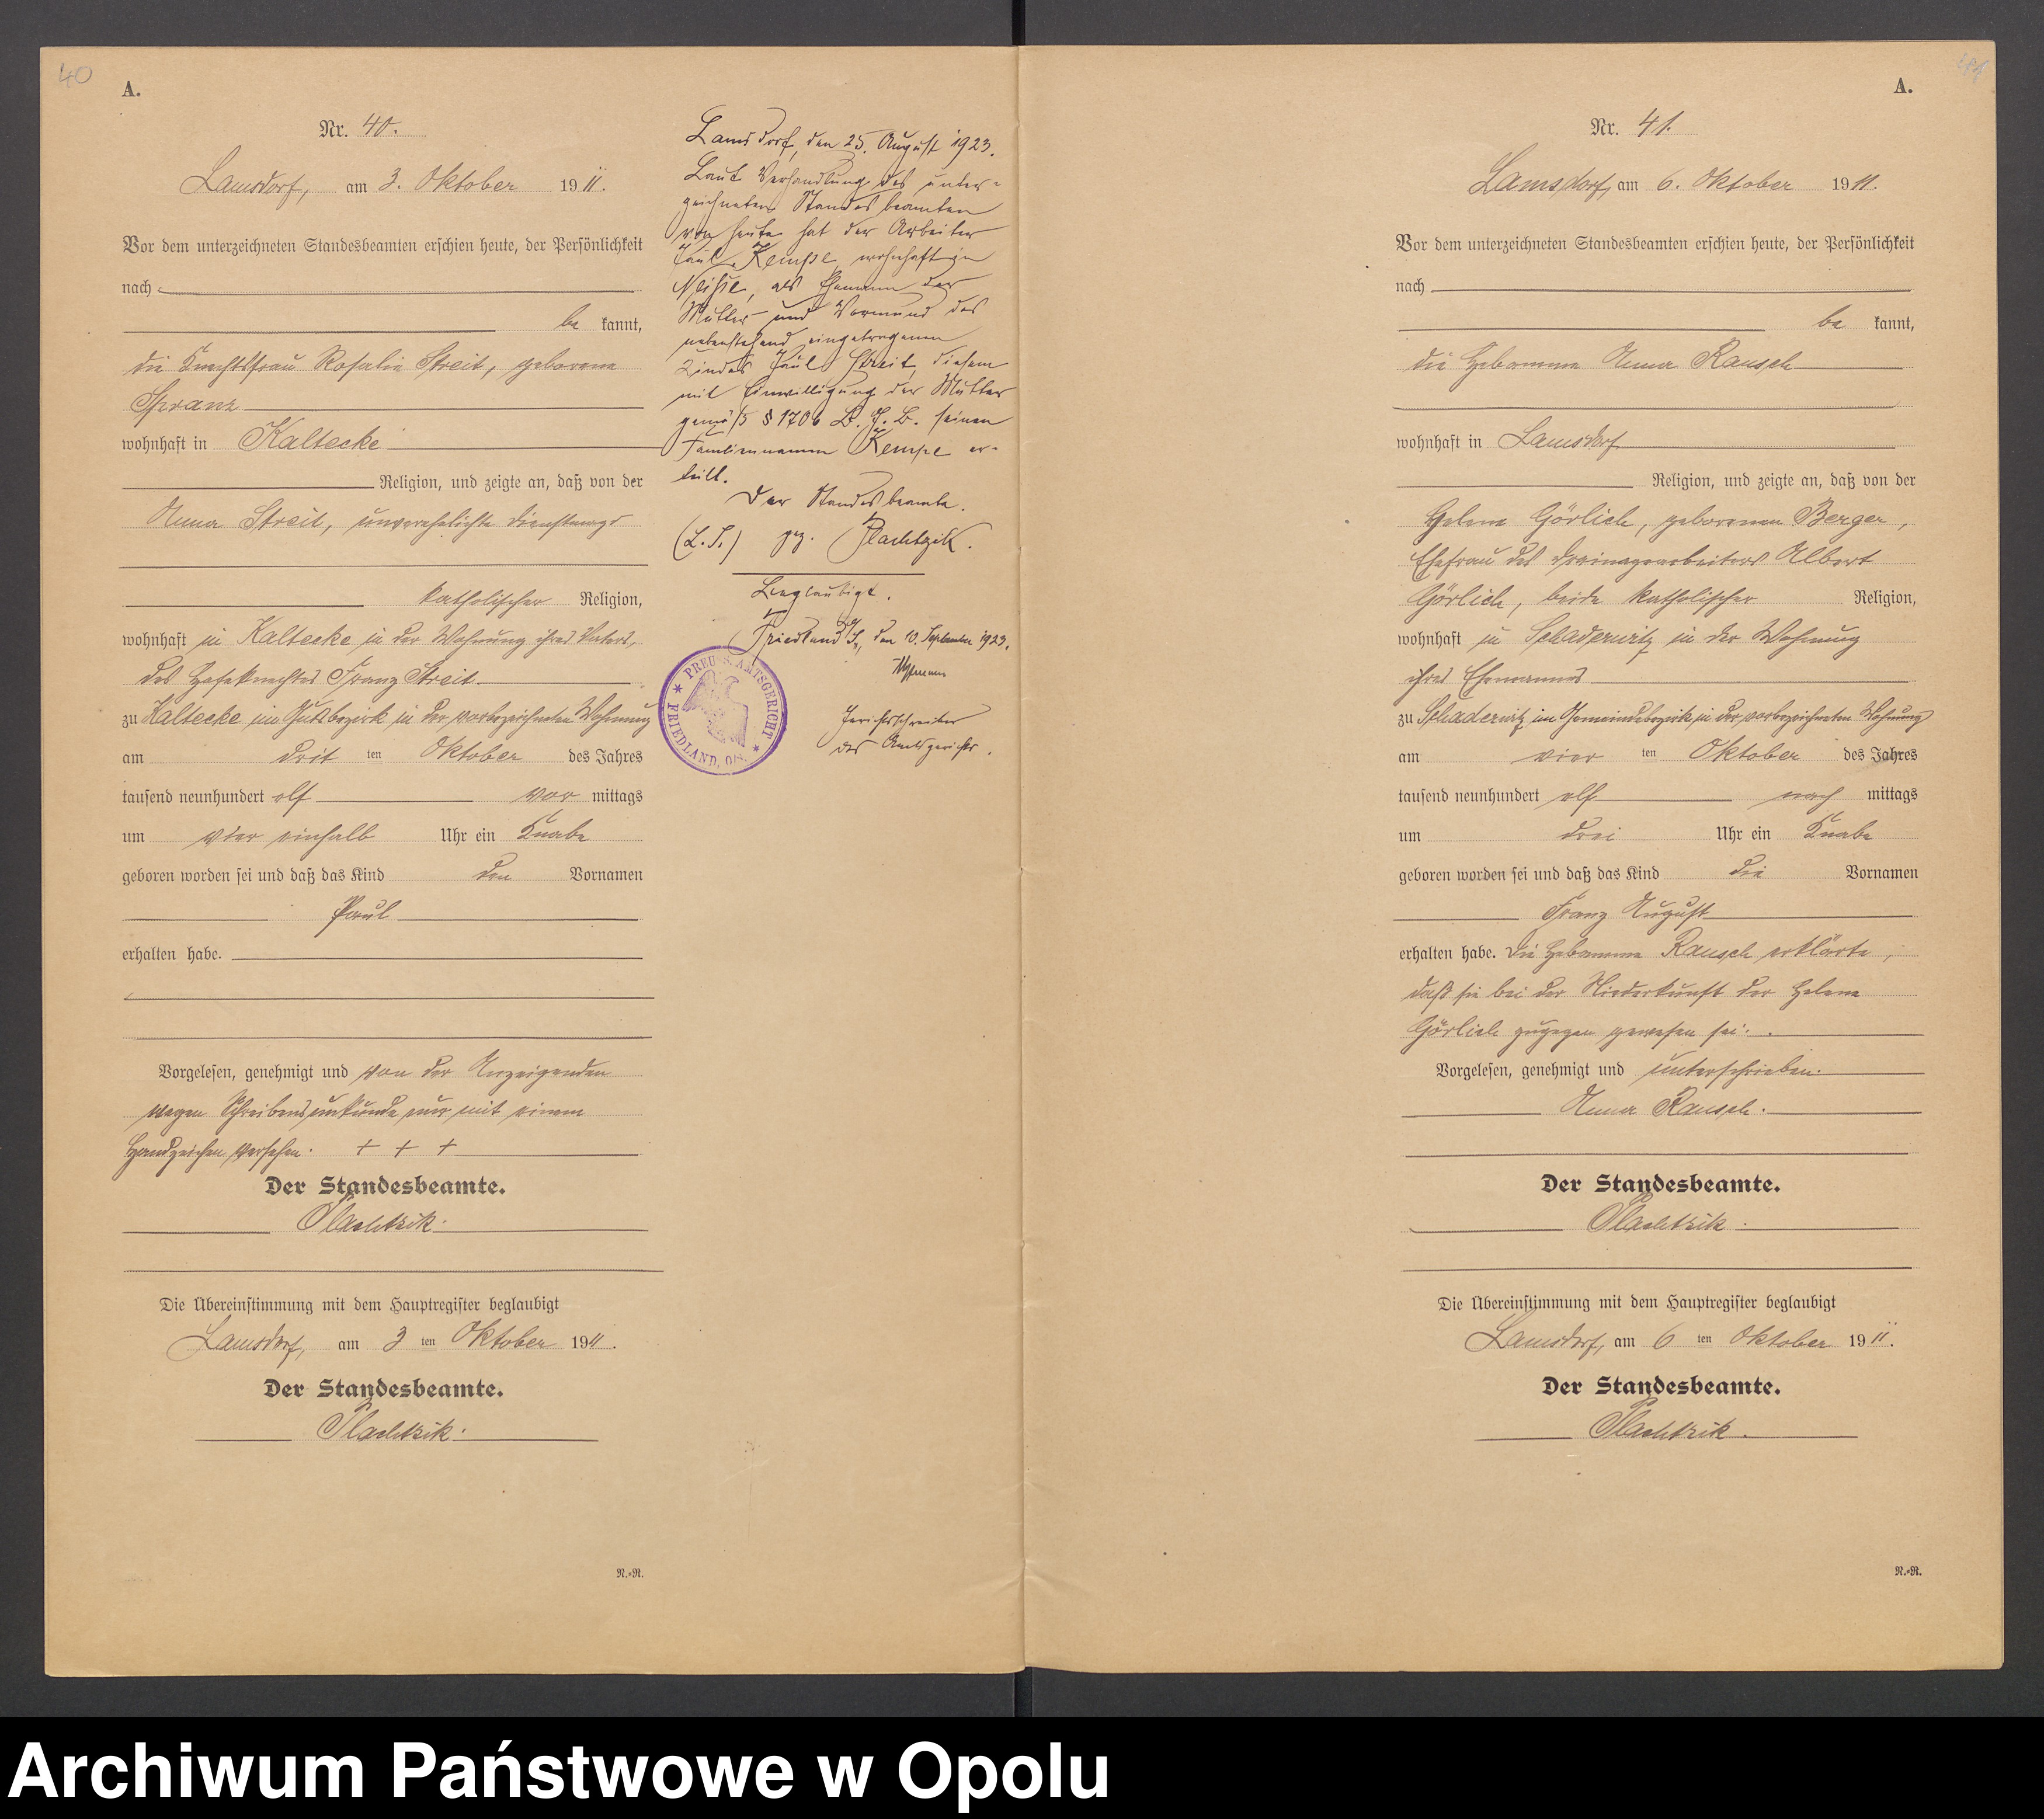 40
A.
Nr. 40.
Lamsdorf, am 3. Oktober 1911.
Vor dem unterzeichneten Standesbeamten erschien heute, der Persönlichkeit
nach
be kannt,
die Knechtsfrau Rosalie Streit, geborene
Spranz
wohnhaft in Kaltecke
Religion, und zeigte an, daß von der
Anna Streit, unverehelichte Dienstmagd
katholischer Religion,
wohnhaft in Kaltecke in der Wohnung ihres Vaters,
des Hofeknechtes Franz Streit
zu Kaltecke im Gutsbezirk in der vorbezeichneten Wohnung
am drit ten Oktober des Jahres
tausend neunhundert elf vor mittags
um vier einhalb Uhr ein Knabe
geboren worden sei und daß das Kind den Vornamen
Paul
erhalten habe.
Vorgelesen, genehmigt und von der Anzeigenden
wegen Schreibensunkunde nur mit einem
Handzeichen versehen. + + +
Der Standesbeamte.
Plachtzik.
Die Übereinstimmung mit dem Hauptregister beglaubigt
Lamsdorf, am 3 ten Oktober 1911.
Der Standesbeamte.
Plachtzik.
N.=R.
Lamsdorf, den 25. August 1923.
Laut Verhandlung des unter=
zeichneten Standesbeamten
von heute hat der Arbeiter
Paul Kempe, wohnhaft in
Neisse, als Ehemann der
Mutter und Vormund des
nebenstehend eingetragenen
Kindes Paul Streit, diesem
mit Einwilligung der Mutter
gemäß § 1706 B. G. B. seinen
Familiennamen Kempe er-
teilt.
Der Standesbeamte.
(L. S.) gez. Plachtzik.
Beglaubigt.
Friedland O/S., den 10. September 1923.
Gerichtsschreiber
des Amtsgerichts.
PREUSS. AMTSGERICHT
FRIEDLAND, O/S.
A.
Nr. 41.
Lamsdorf, am 6. Oktober 1911.
Vor dem unterzeichneten Standesbeamten erschien heute, der Persönlichkeit
nach
be kannt,
die Hebamme Anna Rausch
wohnhaft in Lamsdorf
Religion, und zeigte an, daß von der
Helene Görlich, geborenen Berger,
Ehefrau des Drainagearbeiters Albert
Görlich, beide katholischer Religion,
wohnhaft in Schaderwitz in der Wohnung
ihres Ehemannes
zu Schaderwitz im Gemeindebezirk, in der vorbezeichneten Wohnung
am vier ten Oktober des Jahres
tausend neunhundert elf nach mittags
um drei Uhr ein Knabe
geboren worden sei und daß das Kind die Vornamen
Franz August
erhalten habe. Die Hebamme Rausch erklärte,
daß sie bei der Niederkunft der Helene
Görlich zugegen gewesen sei.
Vorgelesen, genehmigt und unterschrieben.
Anna Rausch.
Der Standesbeamte.
Plachtzik.
Die Übereinstimmung mit dem Hauptregister beglaubigt
Lamsdorf, am 6 ten Oktober 1911.
Der Standesbeamte.
Plachtzik.
N.=R.
Archiwum Państwowe w Opolu